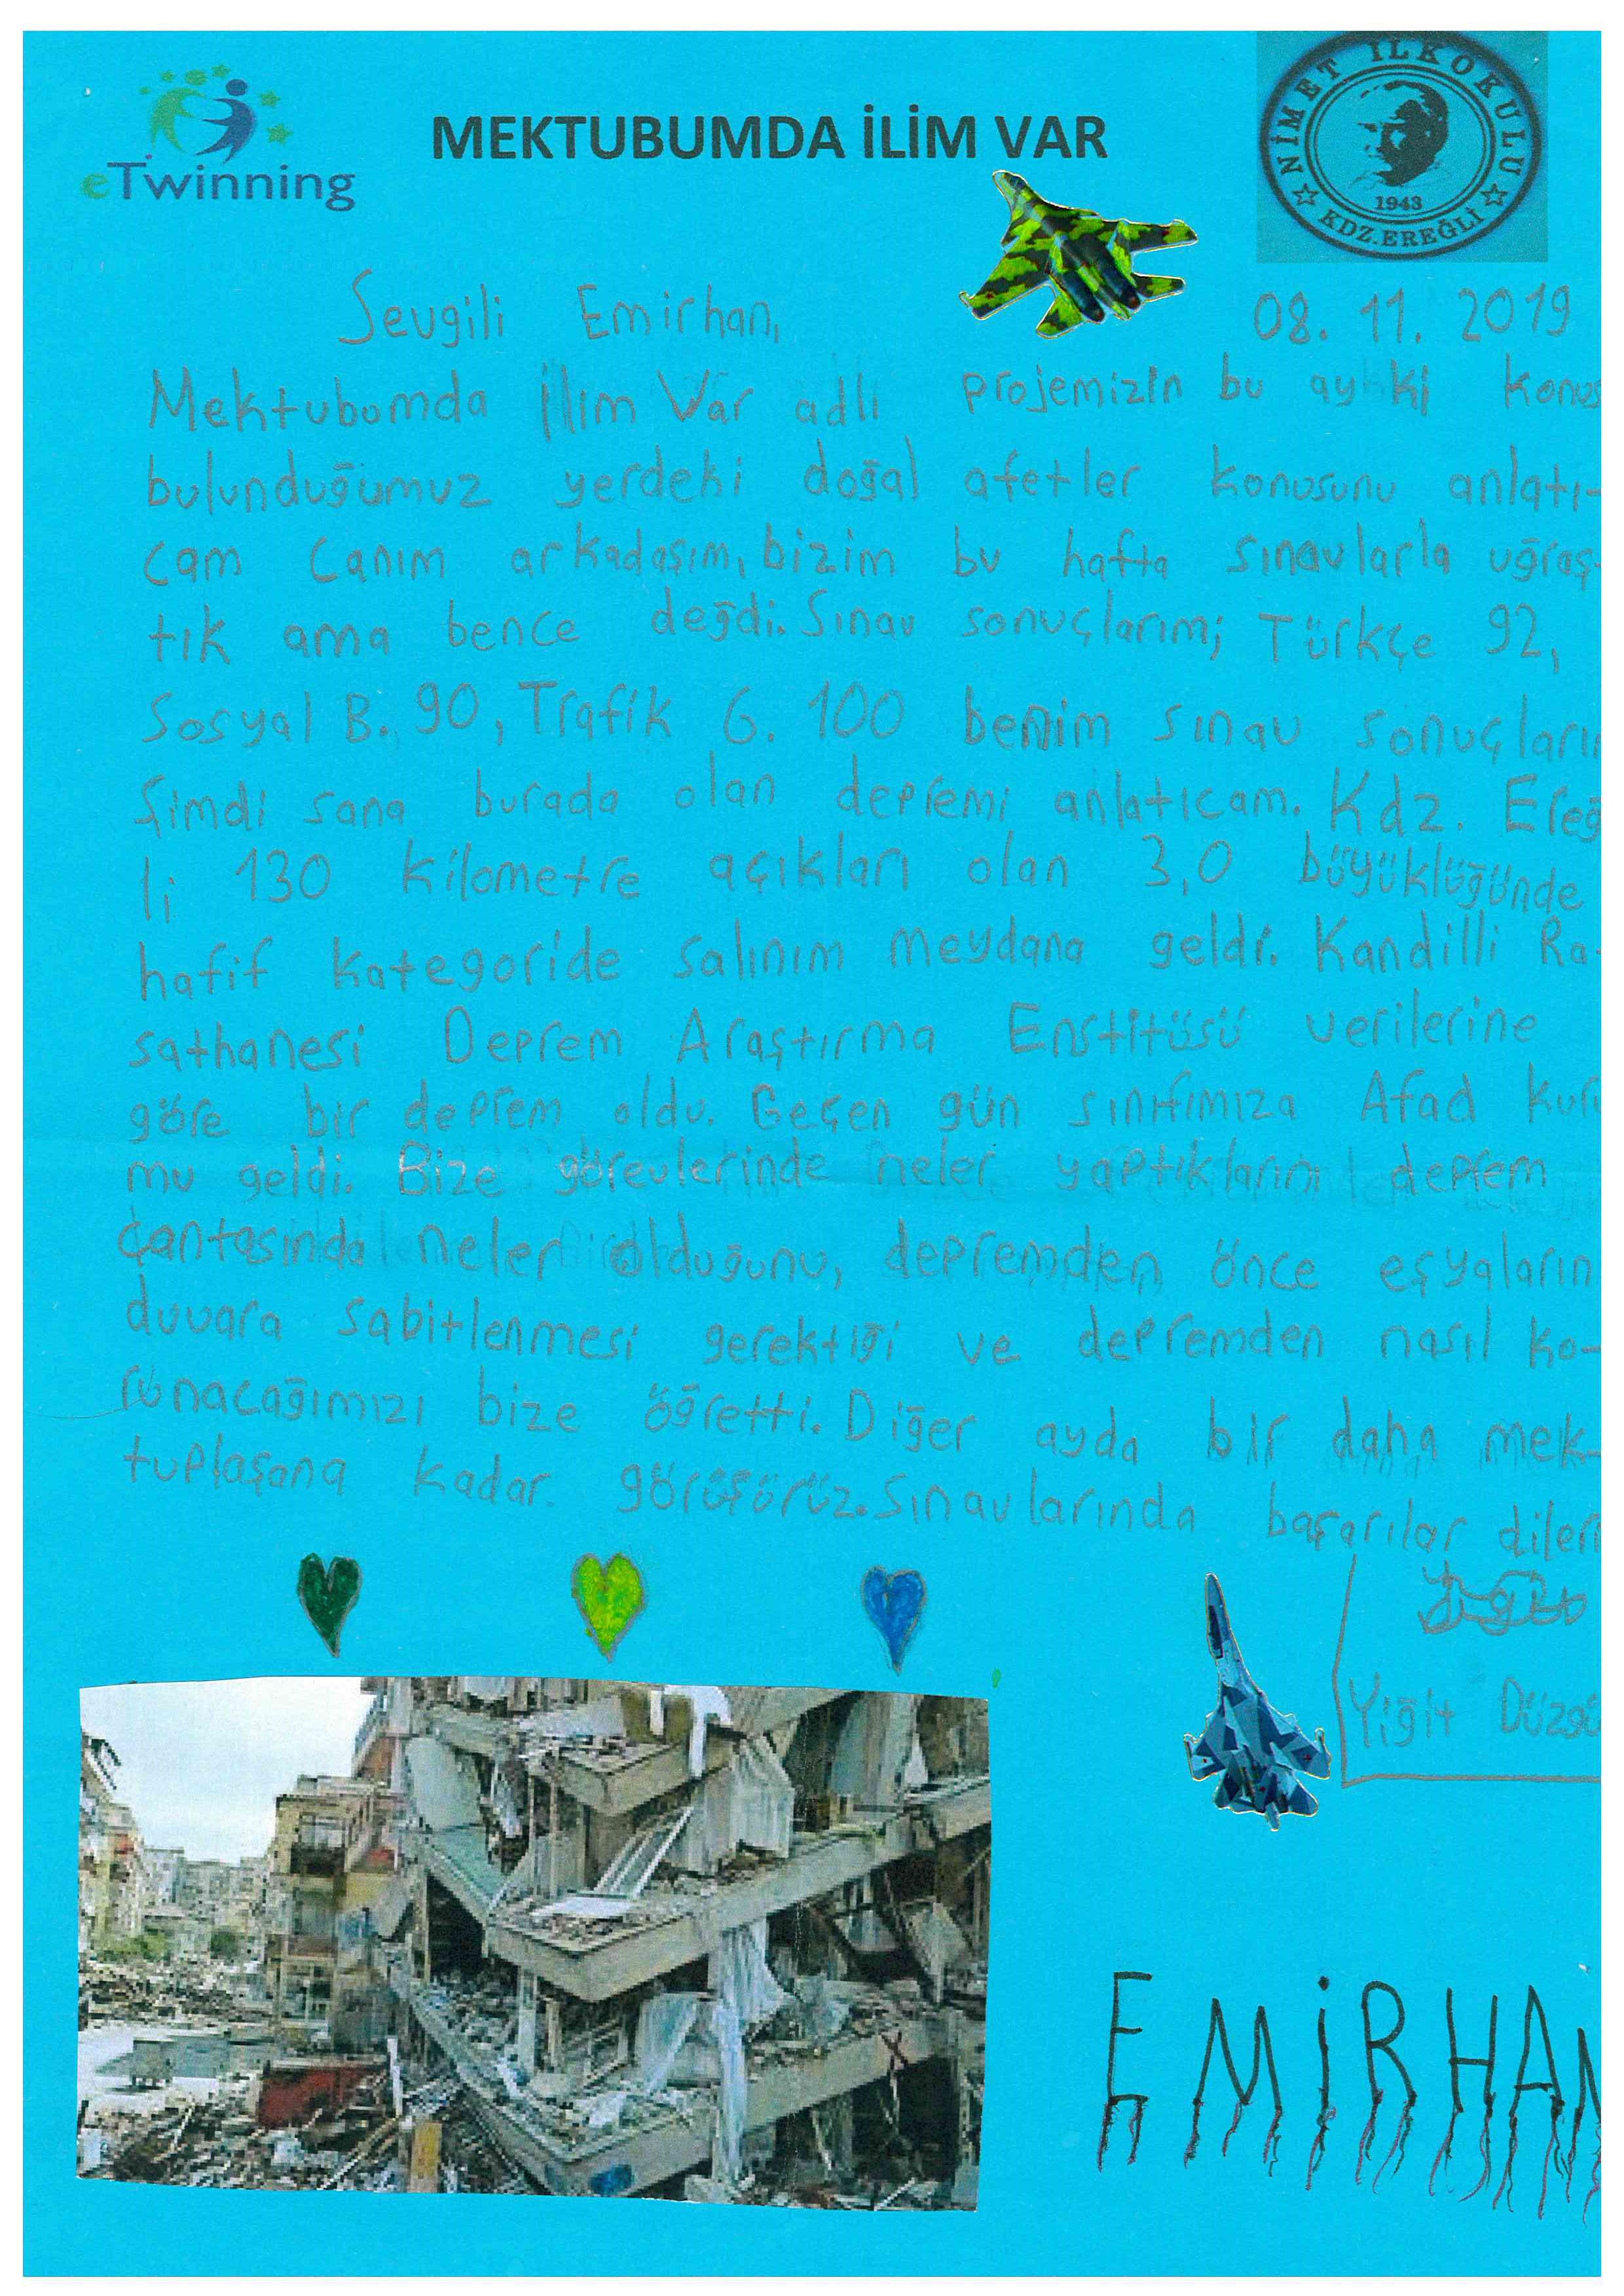 eTwinning
MEKTUBUMDA İLİM VAR
NİMET İLKOKULU
1943
KDZ.EREĞLİ
Sevgili Emirhan,
08. 11. 2019
Mektubumda İlim Var adlı projemizin bu ayki konus
bulunduğumuz yerdeki doğal afetler konusunu anlatı-
cam canım arkadaşım, bizim bu hafta sınavlarla uğraş-
tık ama bence değdi. Sınav sonuçlarım; Türkçe 92,
Sosyal B. 90, Trafik G. 100 benim sınav sonuçları
Şimdi sana burada olan depremi anlatıcam. Kdz. Ereğ
li 130 kilometre açıkları olan 3,0 büyüklüğünde
hafif kategoride salınım meydana geldi. Kandilli Ra-
sathanesi Deprem Araştırma Enstitüsü verilerine
göre bir deprem oldu. Geçen gün sınıfımıza Afad kuru
mu geldi. Bize görevlerinde neler yaptıklarını deprem
çantasında neler olduğunu, depremden önce eşyaların
duvara sabitlenmesi gerektiği ve depremden nasıl ko-
runacağımızı bize öğretti. Diğer ayda bir daha mek-
tuplaşana kadar görüşürüz. Sınavlarında başarılar diler
Yiğit Düzgü
EMİRHAN